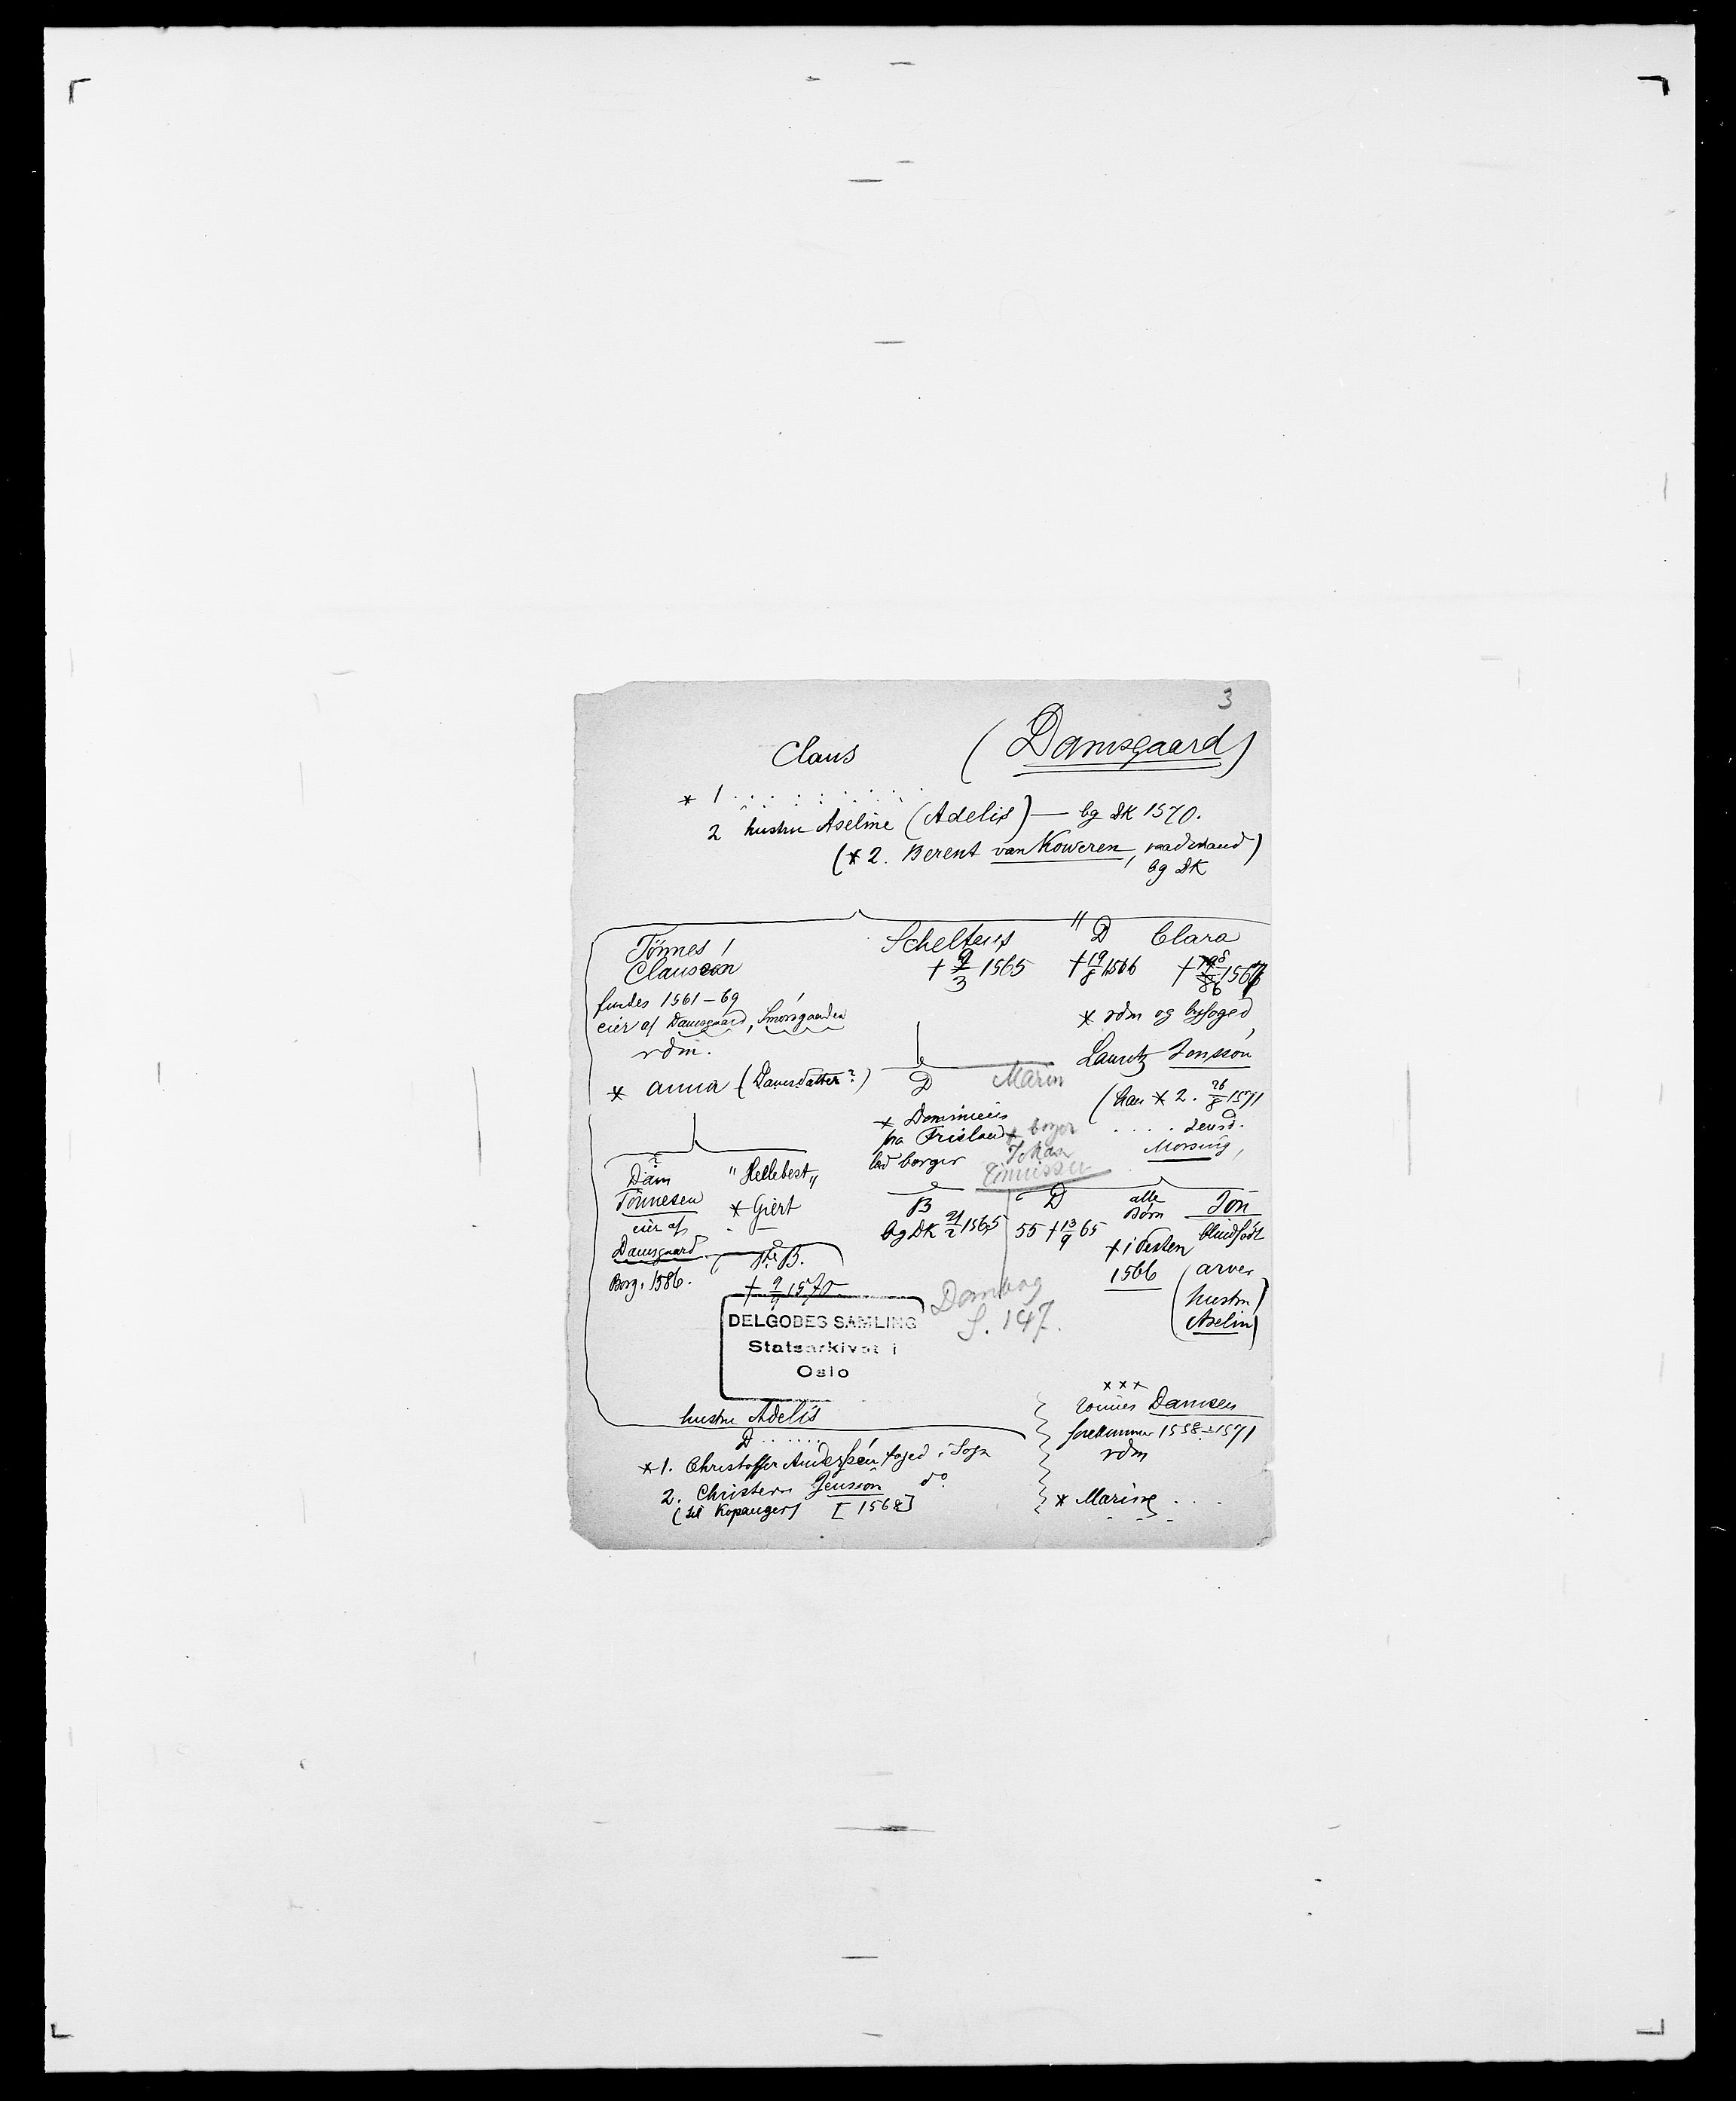 3
Claus (Damsgaard)
* 1 . . . . . . . . .
2 hustru Aseline (Adelis) — bg DK 1570.
(* 2. Berent van Koweren, raadmand)
bg DK
Tönnes Claussøn
findes 1561-69
eier af Damsgaard, Smörsgaarden
rdm.
* Anna (Damsdatter?)
Scheltens
† 9/3 1565
" D
† 19/8 1566
Clara
† 1567
* rdm og byfoged
Lauritz Jonssön
(han * 2. 26/8 1571
. . . . Jensd.
Morsing,
D
* Dominicus
fra Frisland
led borger
Marin
* borger
Johan
Tönnissen
?
Dam
Tönnesen
eier af
Damsgaard
Borg. 1586.
" Hellebest "
* Giert
- —
B.
† 9/9 1570
B
bg DK 21/2 1565
D
55 † 13/9 65
alle
Børn
† i Pesten
1566
Jon
blindfödt
(arver
hustru
Aselin)
Dombog
S. 147.
DELGOBES SAMLING
Statsarkivet i
Oslo
hustru Adelis
D . . . . . .
* 1. Christoffer Anderssen foged i Sogn
2. Christern Jenssön do
(til Kopanger) [1568]
x x x
Tönnes Damsen
forekommer 1558-1571
rdm
* Marine . . . .